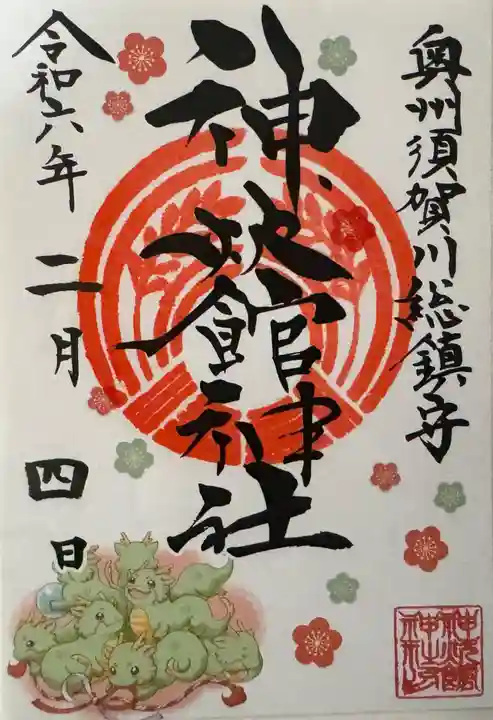 奥州須賀川総鎮守
神炊館神社
令和六年
二月
四日